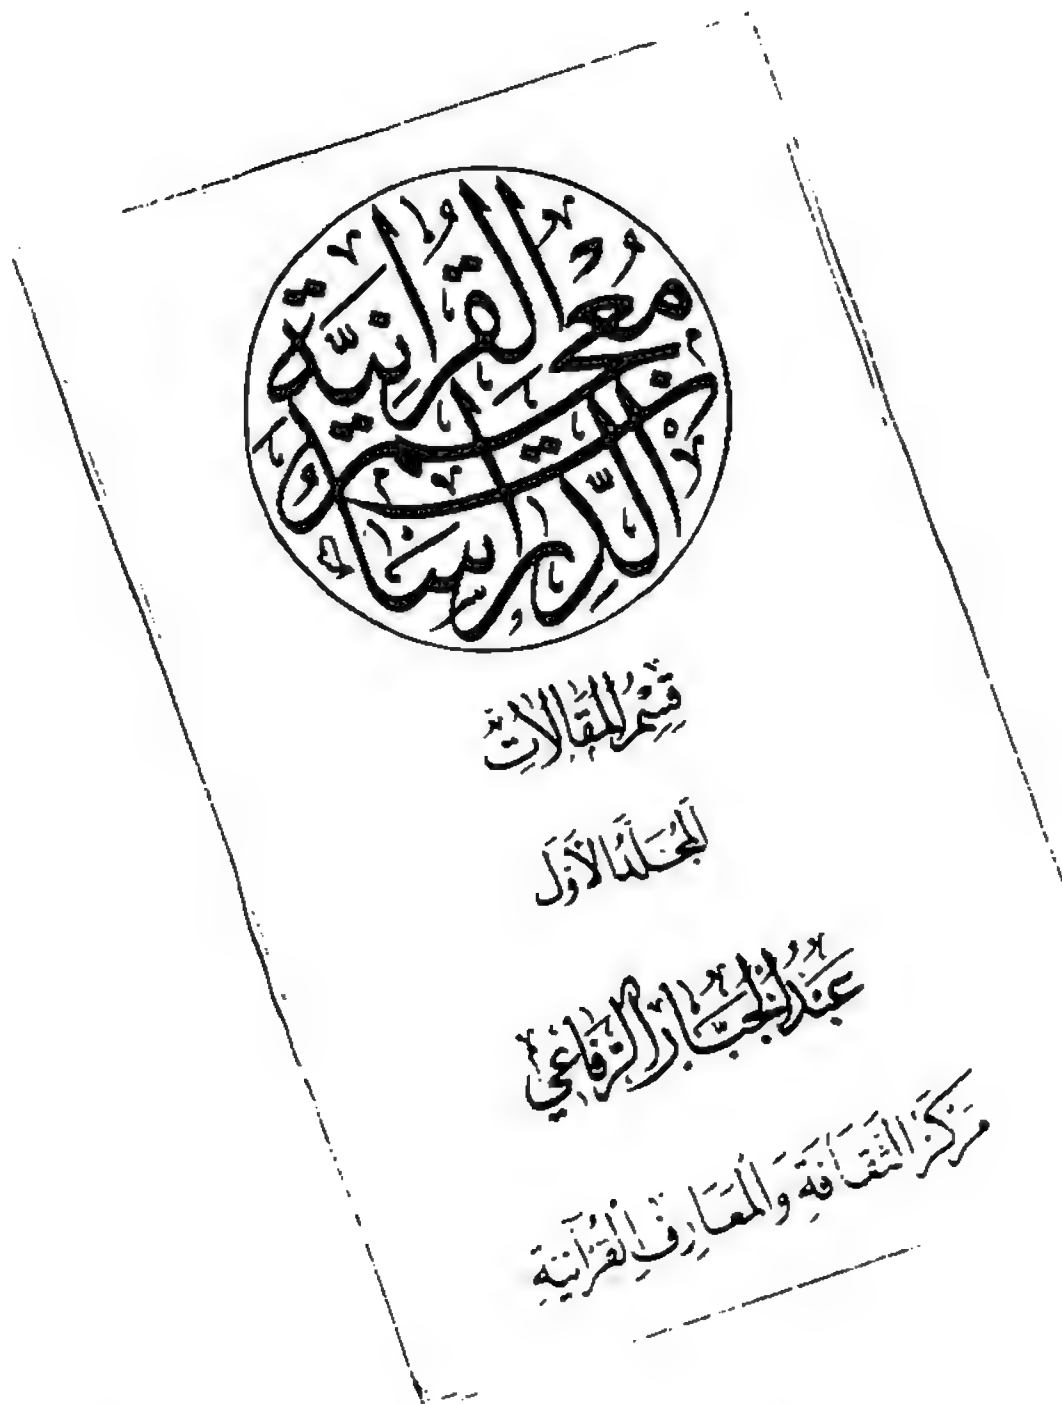 معجم
الدراسات القرآنية
قِسْمُ المَقَالَاتِ
المُجَلَّدُ الأَوَّلَ
عَبْدُ الجَبَّار الرِّفَاعِي
مَرْكَزُ الثَّقَافَةِ وَالْمَعَارِفِ الْقُرْآنِيَّةِ